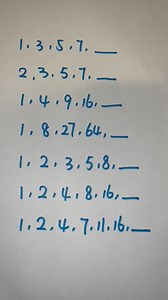 1, 3, 5, 7, __
2, 3, 5, 7, __
1, 4, 9, 16, __
1, 8, 27, 64, __
1, 2, 3, 5, 8, __
1, 2, 4, 8, 16, __
1, 2, 4, 7, 11, 16, __